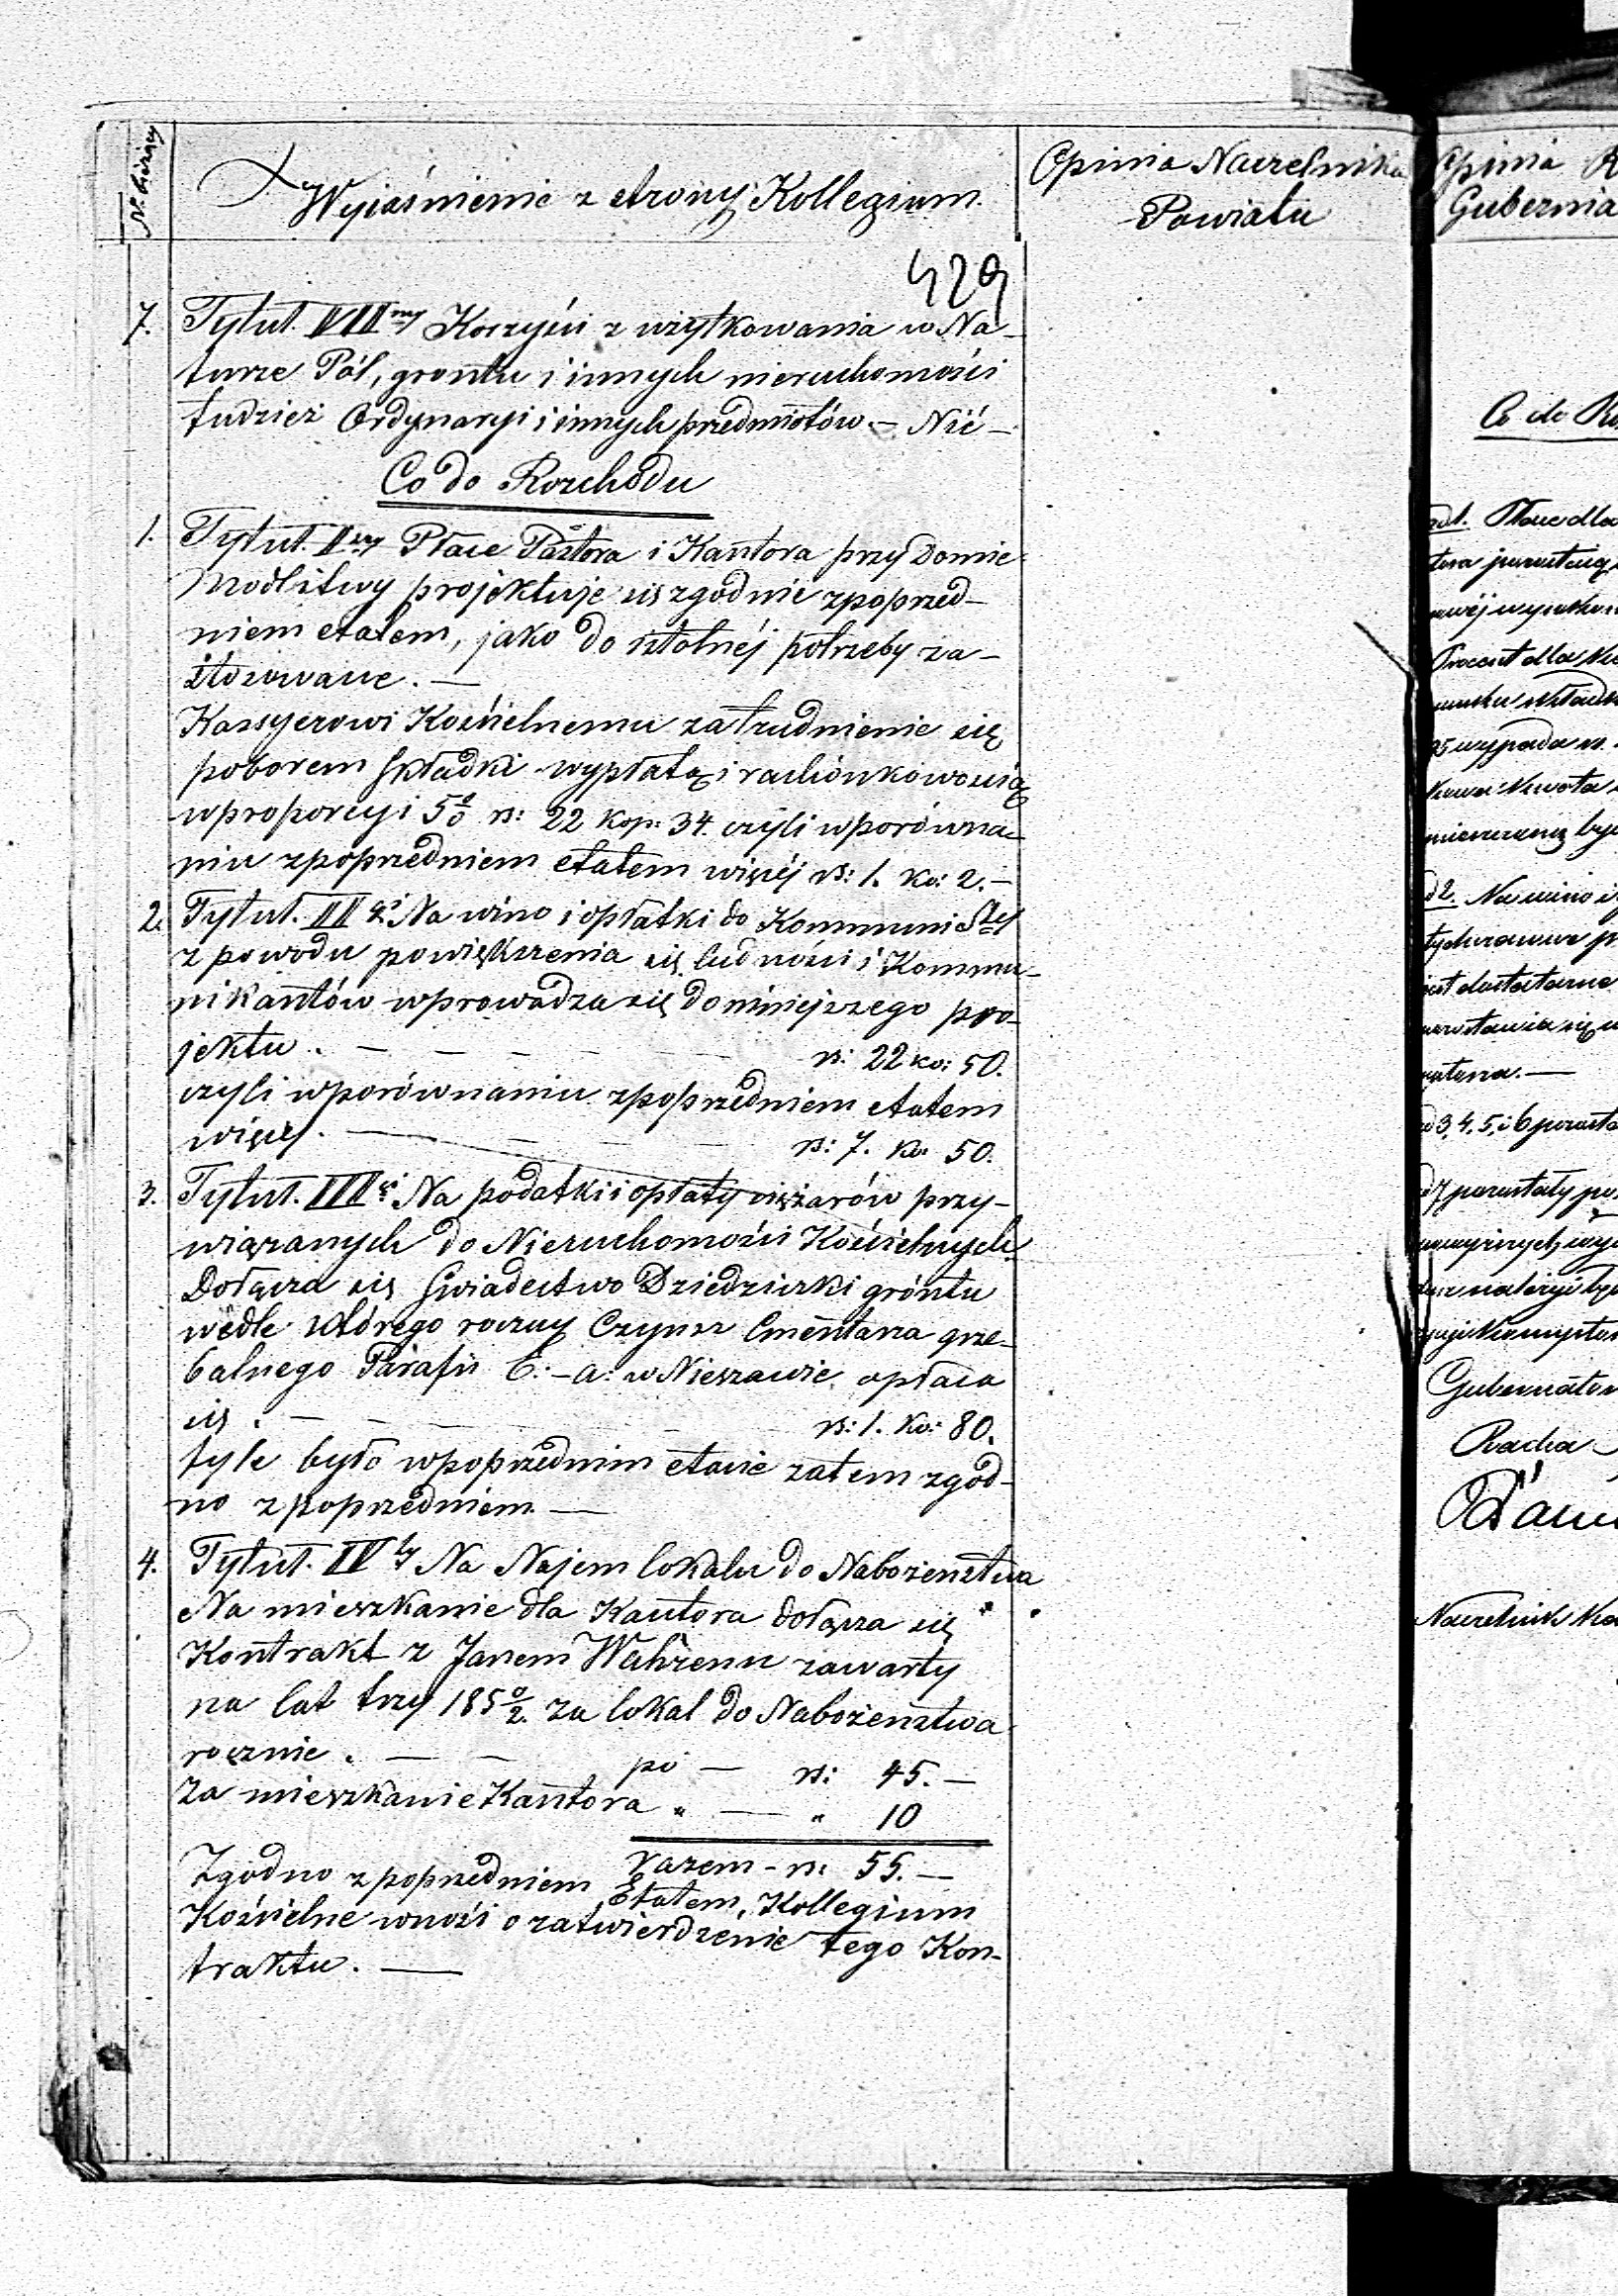 Nr bieżący
Wyjaśnienie z strony Kollegium.
Opinia Naczelnika
Powiatu
429
7. Tytuł. VIImy Korzyści z użytkowania w Na-
turze Pól, grontu i innych nieruchomości
tudzież Ordynaryi i innych przedmiotów. – Nić –
Co do Rozchodu
1. Tytuł. Iszy Płace Pastora i Kantora przy Domie
Modlitwy projektuje się zgodnie z poprzed-
niem etatem, jako do istotnéj potrzeby za-
stosowane. —
Kassyerowi Kościelnemu zatrudnienie się
poborem składki wypłatą i rachónkowością
w proporcyi 5% rs: 22 kop: 34. czyli w porówna-
niu z poprzedniem etatem więcéj rs: 1. ko: 2. –
2. Tytuł. IIgi Na wino i opłatki do Kommunii Stej
z powodu powiększenia się ludności i Kommu-
nikantów wprowadza się do niniejszego pro-
jektu. — — — — — — rs: 22 ko: 50.
czyli w porównaniu z poprzedniem etatem
więcej. — — — — rs: 7. ko: 50.
3. Tytuł. IIIci Na podatki i opłaty ciężarów przy-
wiązanych do Nieruchomości Kościelnych
Dołącza się Świadectwo Dziedziczki gróntu
wedle którego roczny Czynsz Cmentarza grze-
balnego Parafii E: – A: w Nieszawie opłaca
się. — — — — rs: 1. ko: 80.
tyle było w poprzednim etacie zatem zgod-
no z poprzedniem —
4. Tytuł. IVty Na Najem lokalu do Nabożeństwa
Na mieszkanie dla Kantora dołącza się
Kontrakt z Janem zawarty
na lat trzy 1850/2. za lokal do Nabożeństwa
rocznie. — — po — rs: 45. —
Za mieszkanie Kantora " — " 10
razem – rs 55. —
Zgodno z poprzedniem Etatem, Kollegium
Kościelne wnosi o zatwierdzenie tego Kon-
traktu. —
Opinia R
Gubernia
Co do Ro
ad 1. Płace dla
ad 2. Na wino i
jest dostateczne
ad 3, 4, 5, i 6 pozosta
ad 7 pozostały po
Gubernator
Radca
Naczelnik